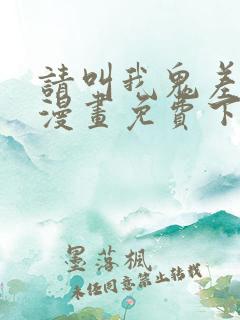 請叫我鬼差
漫畫免費下
墨落楓
未经同意禁止转载